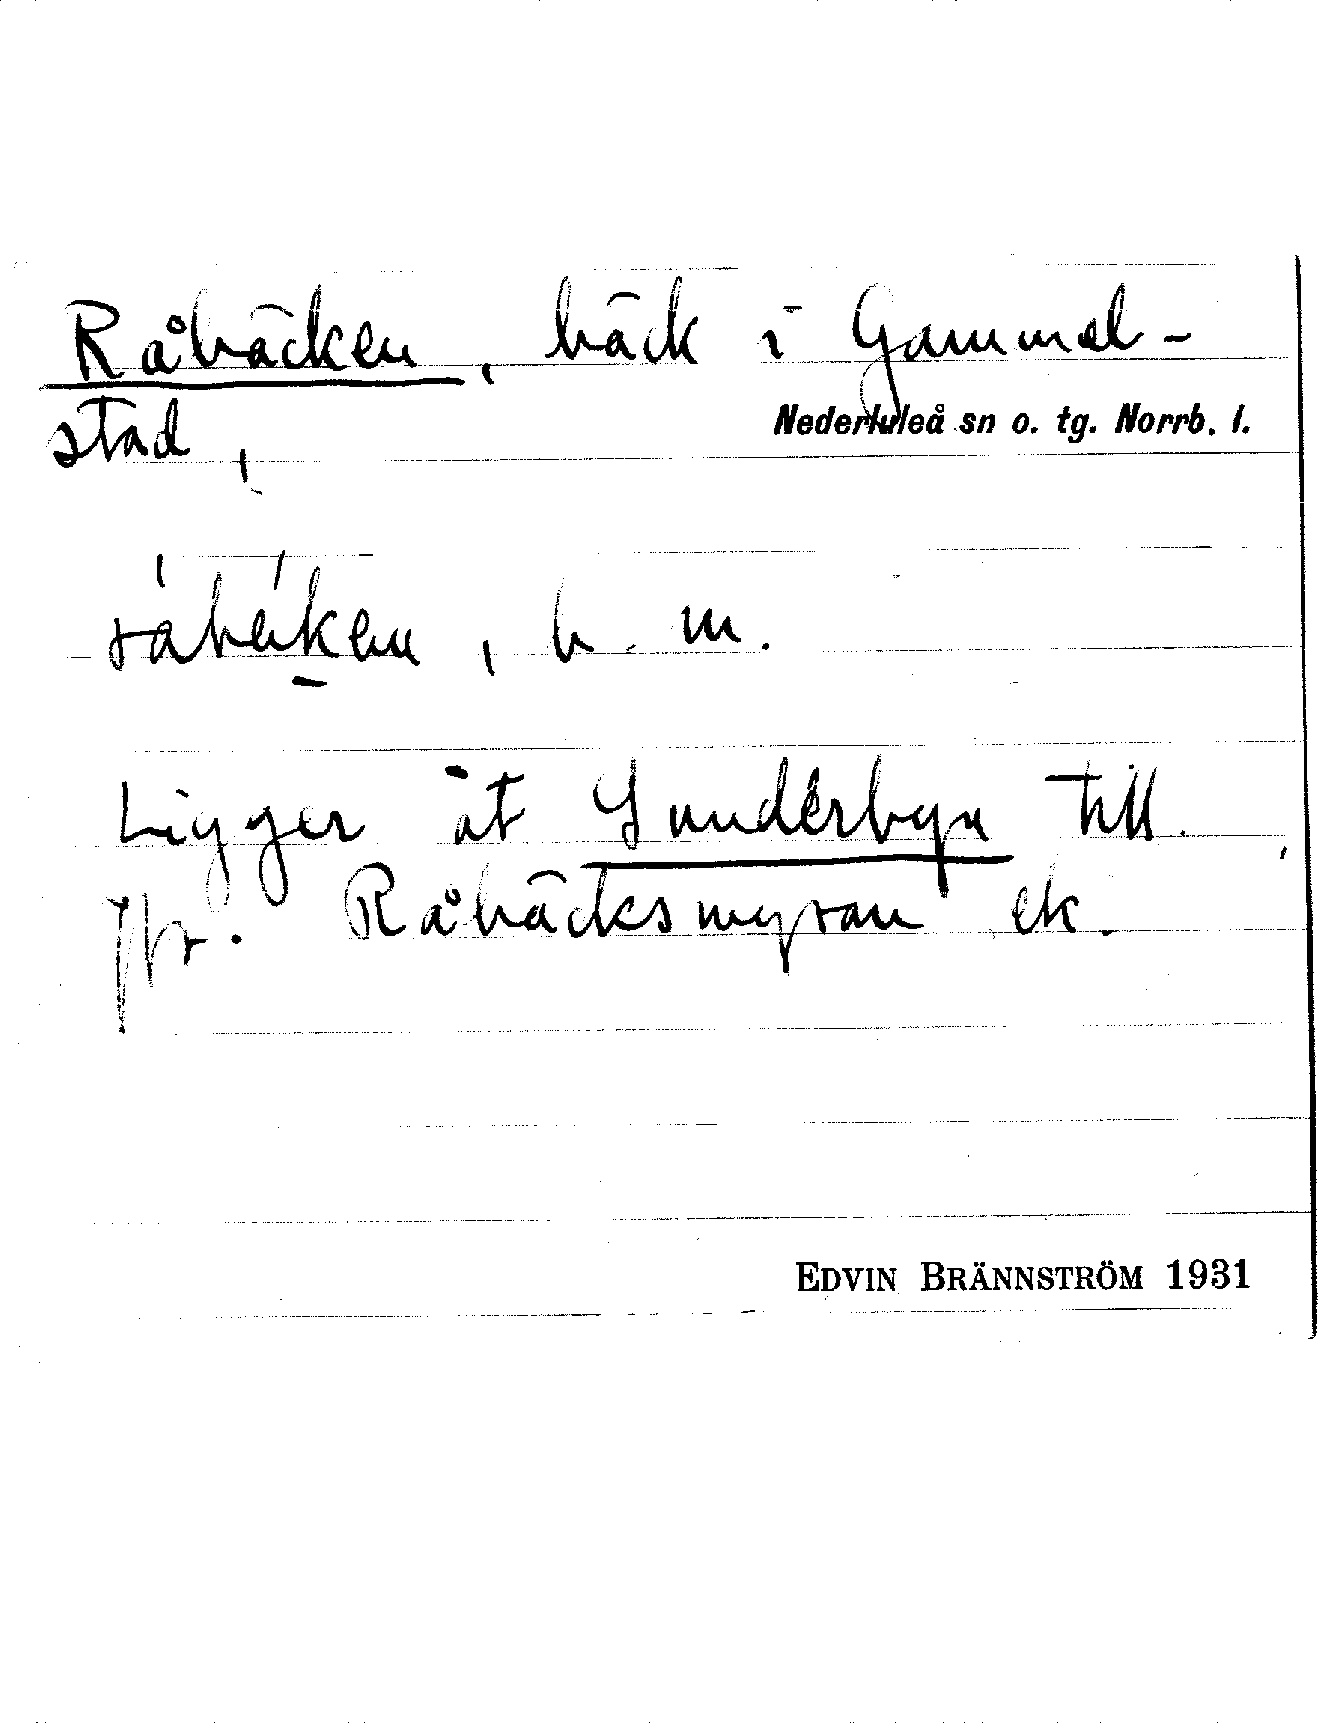 Råbäcken, bäck i Gammel-
stad,
Nederluleå sn o. tg. Norrb. l.
b. m.
Ligger åt Sunderbyn till.
Jfr. Råbäcksmyran etc.
EDVIN BRÄNNSTRÖM 1931